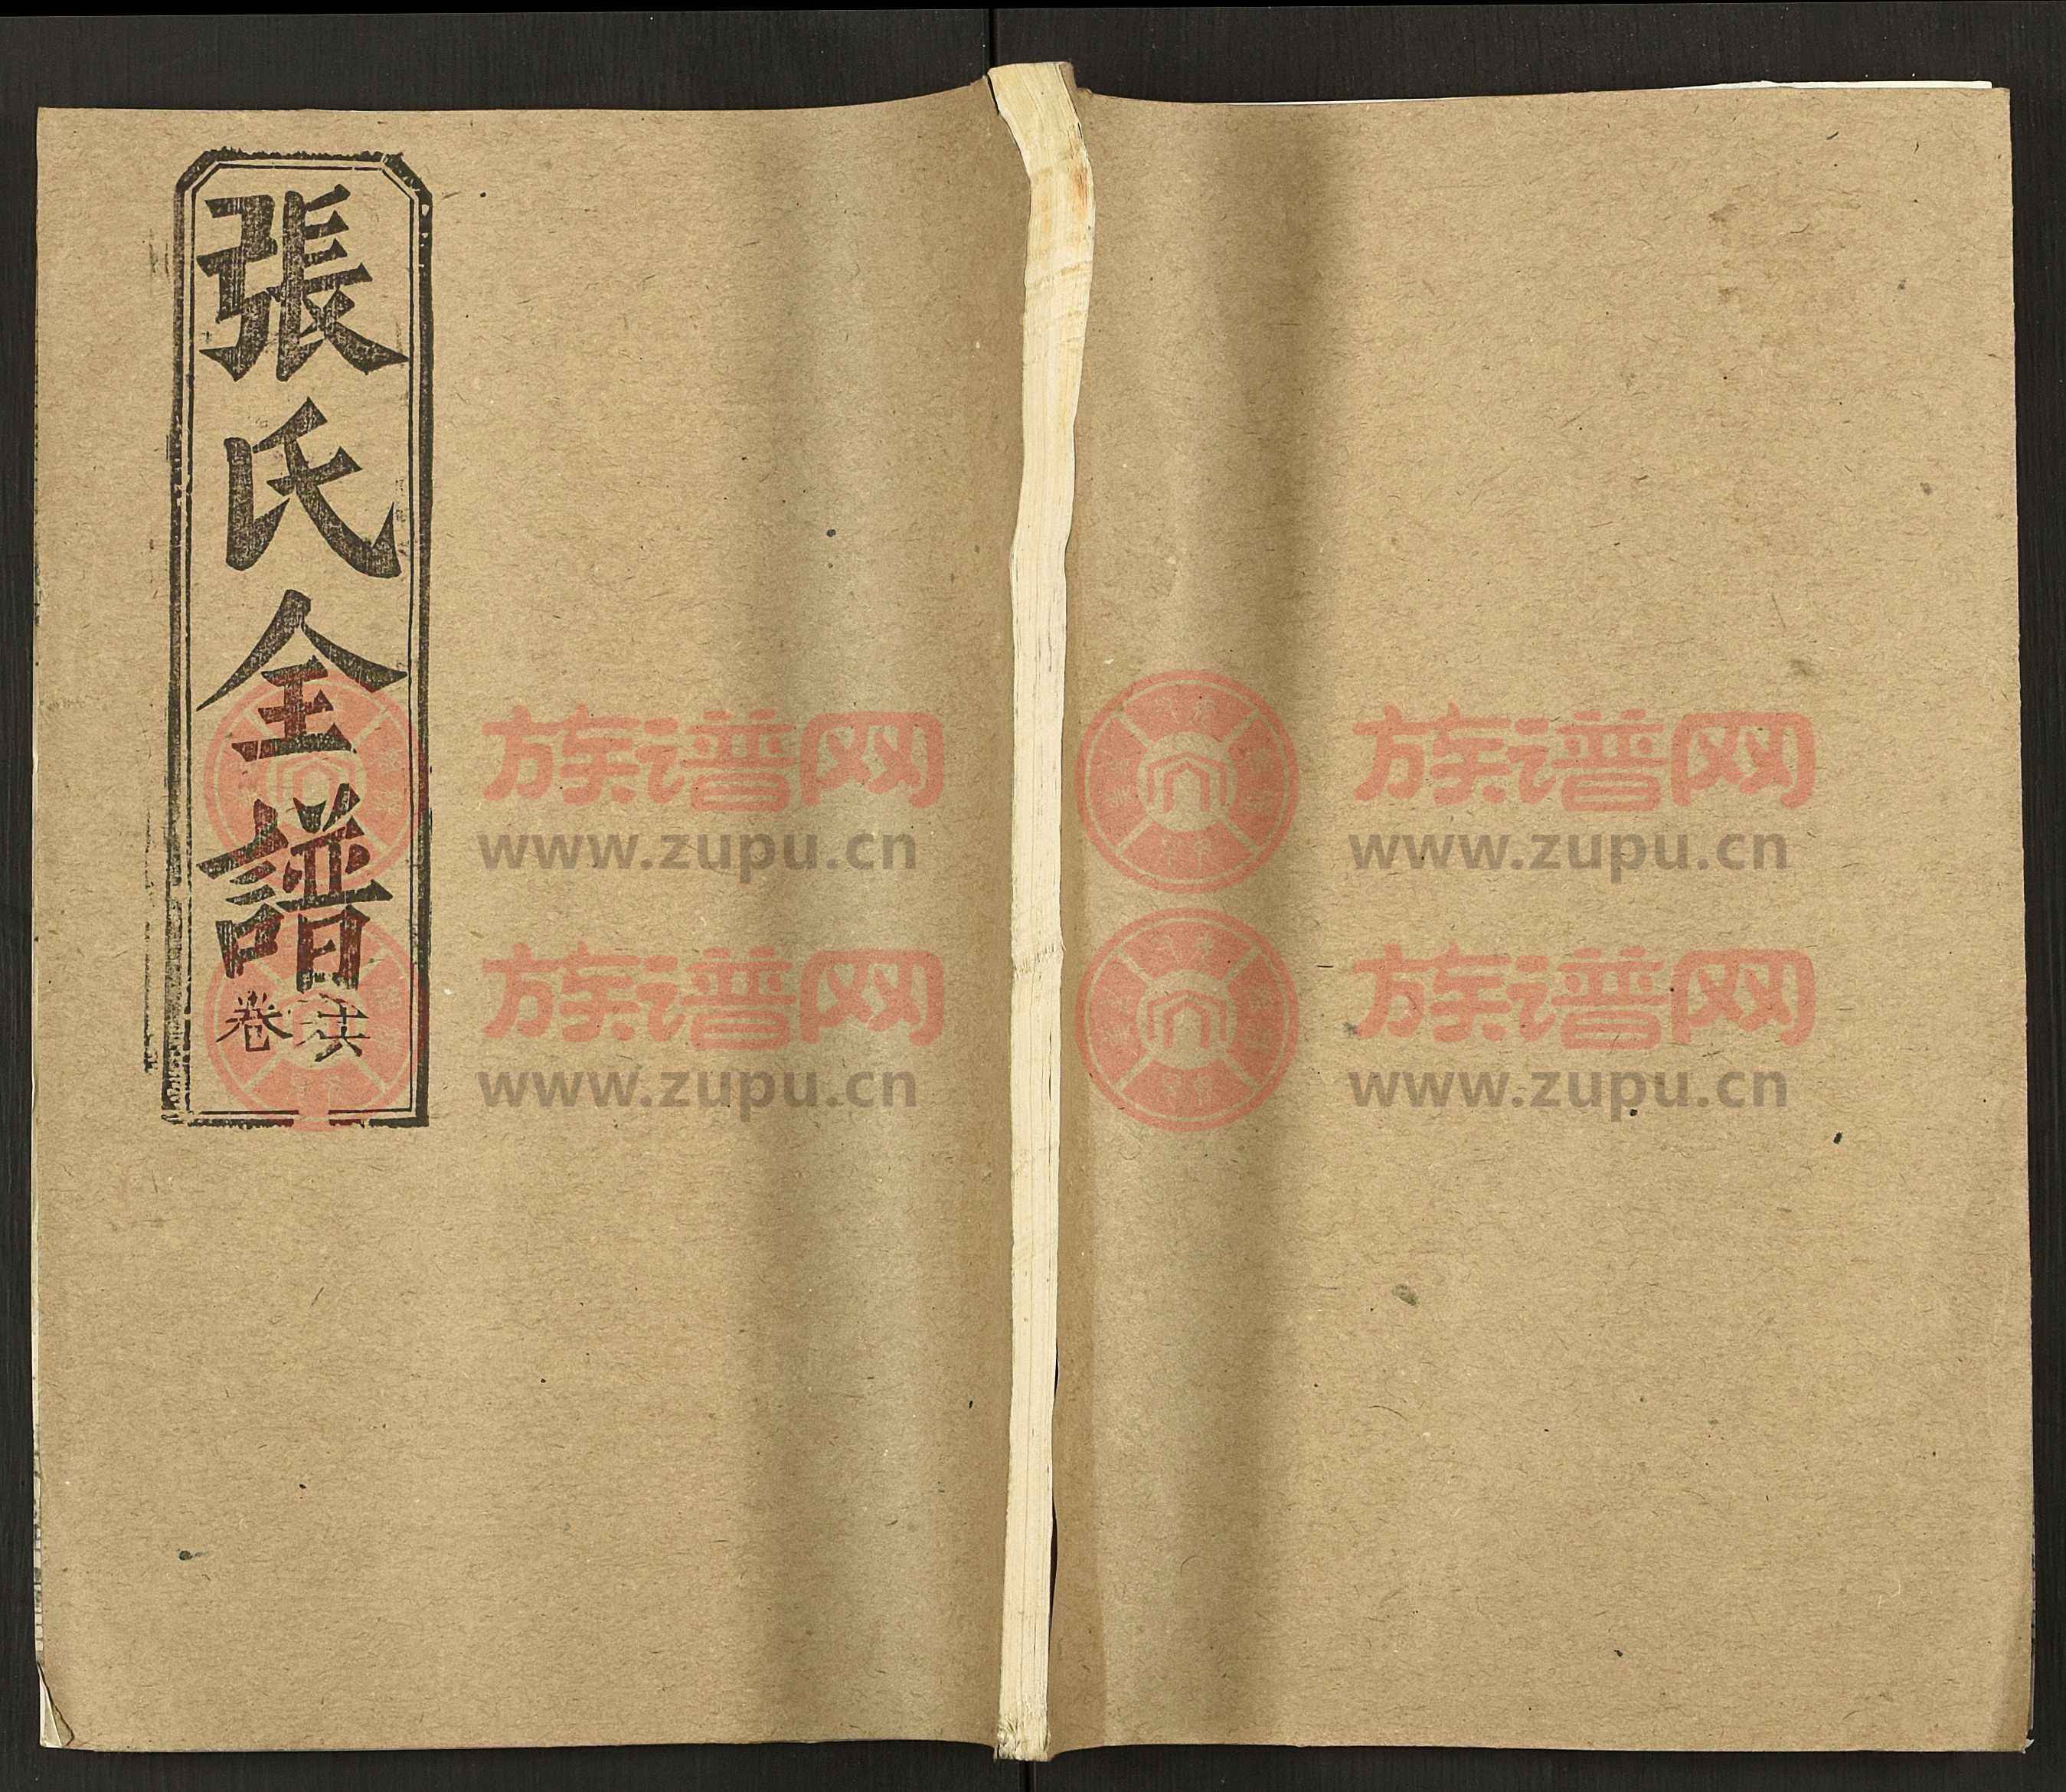 張氏全譜
卷
族谱网
www.zupu.cn
族谱网
www.zupu.cn
族谱网
www.zupu.cn
族谱网
www.zupu.cn